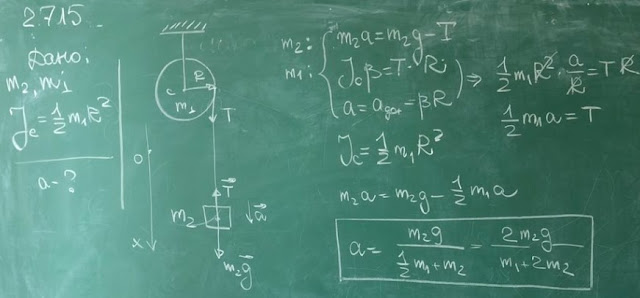 2.715.
Дано:
m₂, m₁
J_c = 1/2 m₁R²
a - ?
C R
m₁
T
O
T⃗
m₂ ↓a⃗
X
m₂g⃗
m₂: { m₂a = m₂g - T
m₁: { J_cβ = T · R; ⇒ 1/2 m₁R² · a/R = TR
{ a = = βR 1/2 m₁a = T
J_c = 1/2 m₁R²
m₂a = m₂g - 1/2 m₁a
a = m₂g / (1/2 m₁ + m₂) = 2m₂g / (m₁ + 2m₂)